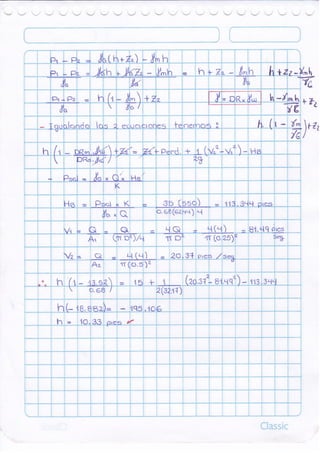 P1 - P2 = γo(h+Z2) - γmh
P1 - P2 / γo = γoh + γoZ2 - γmh / γo = h + Z2 - γmh / γo h+Z2-γmh / γG
P1-P2 / γo = h (1 - γm / γo) + Z2 γ = DR * γω h - γmh / γG + Z2
- Igualando las 2 ecuaciones tenemos : h (1 - γm / γG) + Z2
h (1 - DRm.γω / DRo.γω) + Z2 = Z2 + Perd. + 1/2g (V2² - V1²) - HB
- PBd = γo * Q * HB / K
HB = PBd * K / γo * Q = 35 (550) / 0.68(62.4) 4 = 113.344 pies
V1 = Q / A1 = Q / (π D²)/4 = 4Q / π D² = 4(4) / π (0.25)² = 81.49 pies / seg
V2 = Q / A2 = 4(4) / π (0.5)² = 20.37 pies /seg
∴ h (1 - 13.52 / 0.68) = 15 + 1 / 2(32.17) (20.37² - 81.49²) - 113.344
h(-18.882) = - 195.106
h = 10.33 pies ✓
Classic